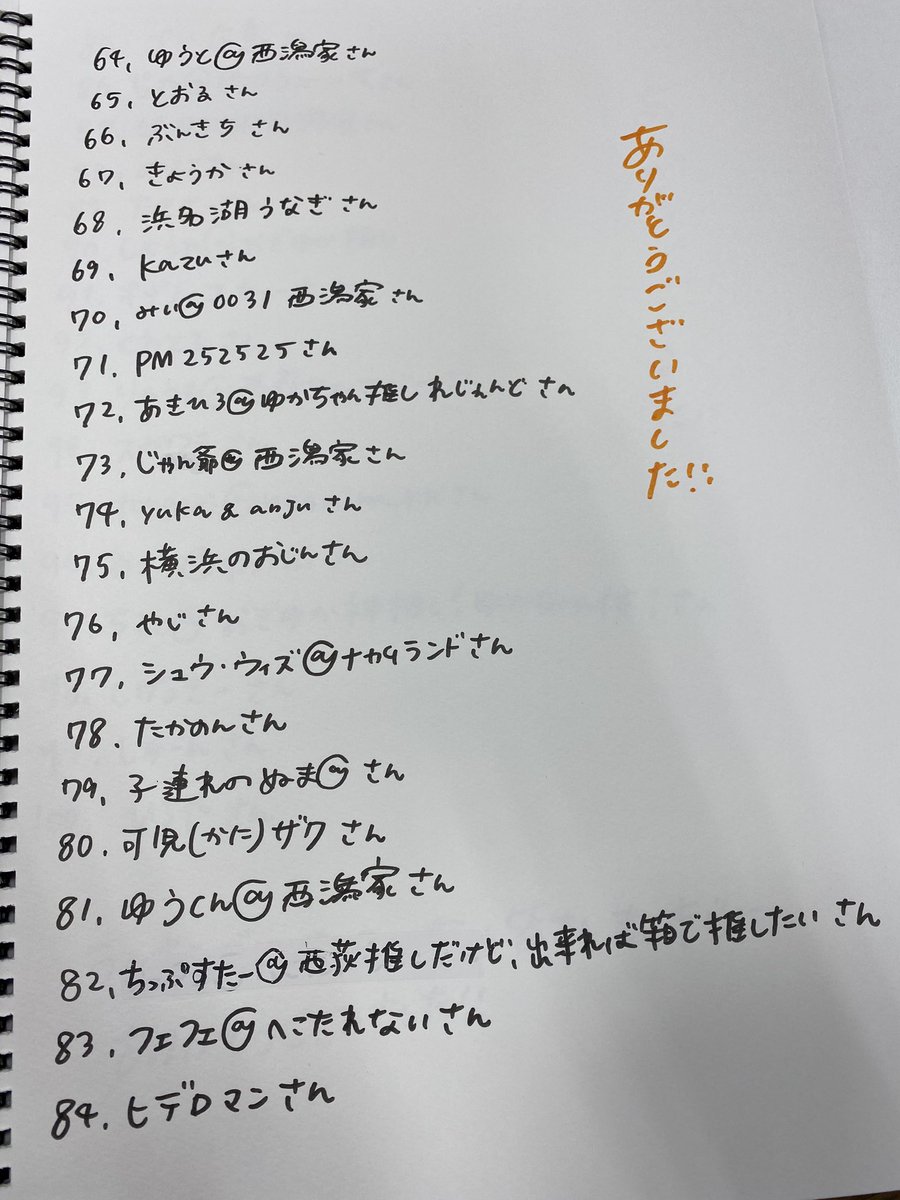 64, ゆうと@西潟家さん
65, とおるさん
66, ぶんきちさん
67, きょうかさん
68, 浜名湖うなぎさん
69, Kazuさん
70, みい@0031西潟家さん
71. PM252525さん
72, あきひろ@ゆかちゃん推しれじぇんどさん
73, じゃん爺@西潟家さん
74, yuka & anjuさん
75, 横浜のおじんさん
76, やじさん
77, シュウ・ウィズ@ナカムランドさん
78. たかめんさん
79, 子連れのぬま@さん
80. 可児(かに)ザクさん
81. ゆうくん@西潟家さん
82, ちっぷすたー@西荻推しだけど、出来れば箱で推したいさん
83. フェフェ@へこたれないさん
84. ヒデロマンさん
ありがとうございました!!